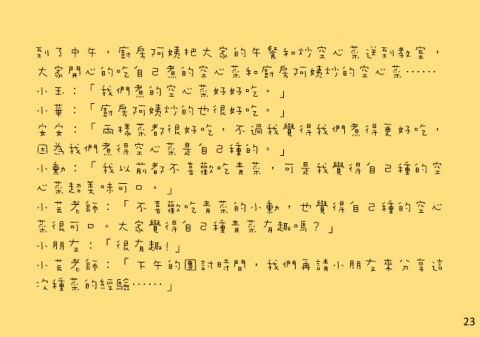 到了中午，廚房阿姨把大家的午餐和炒空心菜送到教室，
大家開心的吃自己煮的空心菜和廚房阿姨炒的空心菜⋯⋯
小玉：「我們煮的空心菜好好吃。」
小華：「廚房阿姨炒的也很好吃。」
安安：「兩樣菜都很好吃，不過我覺得我們煮得更好吃，
因為我們煮得空心菜是自己種的。」
小動：「我以前都不喜歡吃青菜，可是我覺得自己種的空
心菜超美味可口。」
小芸老師：「不喜歡吃青菜的小動，也覺得自己種的空心
菜很可口。大家覺得自己種青菜有趣嗎？」
小朋友：「很有趣！」
小芸老師：「下午的團討時間，我們再請小朋友來分享這
次種菜的經驗⋯⋯」
23